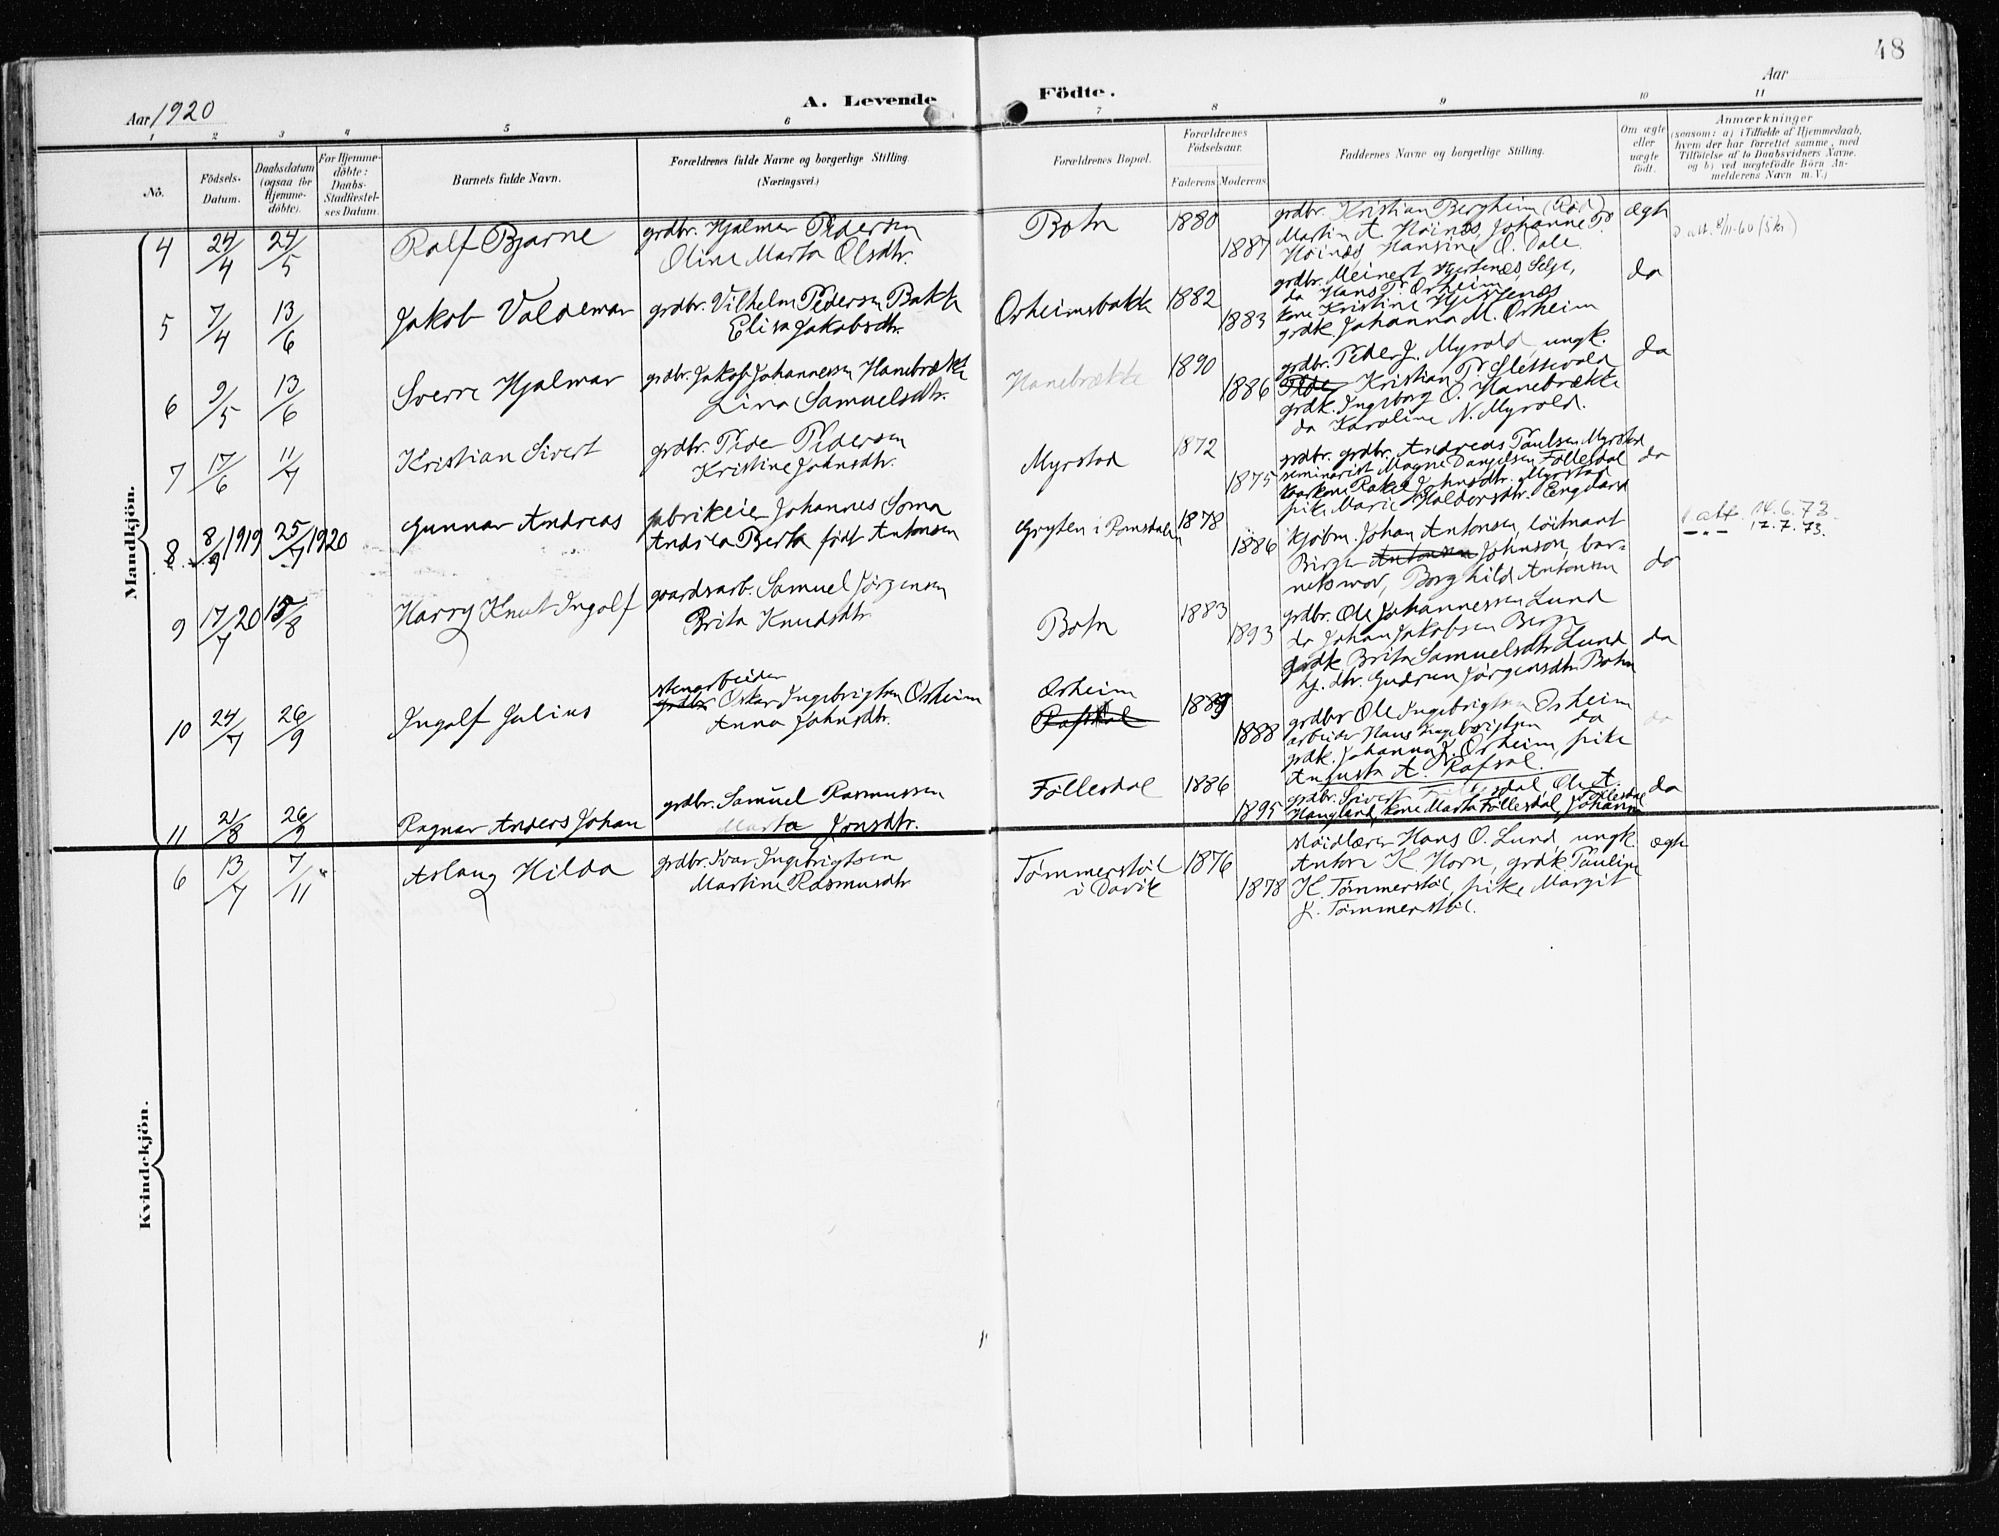 48
Aar 1920
A. Levende Födte.
Aar
1 2 3 4 5 6 7 8 9 10 11
No.
Födsels-Datum.
Daabsdatum (ogsaa for Hjemme-döbte).
For Hjemme-döbte: Daabs-Stadfæstel-ses Datum.
Barnets fulde Navn.
Forældrenes fulde Navne og borgerlige Stilling. (Næringsvei.)
Forældrenes Bopæl.
Forældrenes Födselsaar.
Faderens Moderens
Faddernes Navne og borgerlige Stilling.
Om ægte eller uægte födt.
Anmærkninger
(saasom: a) i Tilfælde af Hjemmedaab,
hvem der har forrettet samme, med
Tilföielse af to Daabsvidners Navne.
og b) ved uægtefödte Börn An-
melderens Navn m. V.)
Mandkjön.
4 24/4 24/5 Ralf Bjarne
grdbr. Hjalmar Pedersen
Oline Marta Olsdtr.
Botn 1880 1887
grdbr. Kristian Bergheim
Martin A. Höinæs, Johanne P.
Höinæs, Hansine O. Dale.
ægte
5 7/4 13/6 Jakob Valdemar
grdbr. Vilhelm Pedersen Bakke
Elisa Jakobsdtr.
Orheimsbakke 1882 1883
grdbr. Meinert Hjertenæs, Selje,
do Hans P. Orheim
kone Kristine Hjertenæs
grdk. Johanna M. Orheim
do
6 9/5 13/6 Sverre Hjalmar
grdbr. Jakob Johannesen Hanebrække
Lina Samuelsdtr.
Hanebrække 1890 1886
grdbr. Peder J. Myrold, ungk.
Kristian P. Slettevold
grdk. Ingeborg O. Hanebrække
do Karoline N. Myrold.
do
7 17/6 11/7 Kristian Sivert
grdbr. Peder Pedersen
Kristine Johnsdtr.
Myrstad 1872 1875
grdbr. grdbr. Andreas Paulsen Myrstad
seminarist Magne Danielsen Föllesdal
Rakel Johnsdtr. Myrstad
pike Marie Haldorsdtr. Engeland
do
8 8/9 1919 25/7 1920 Gunnar Andreas
fabrikeier Johannes Soma
Andrea Berta födt Antonsen
Grytten i Romsdalen 1878 1886
kjöbm. Johan Antonsen, löitnant
Birger Antonsen Johnson, bar-
nets mor, Borghild Antonsen
do
14.6.73
17.7.73.
9 17/7 20 15/8 Harry Knut Ingolf
gaardsarb. Samuel Jörgensen
Brita Knudsdtr.
Botn 1883 1893
grdbr. Ole Johannessen Lund
do Johan Jakobsen Berge
grdk. Brita Samuelsdtr. Lund
hj. dtr. Gudrun Jörgensdtr. Botn
do
10 24/7 26/9 Ingolf Julius
stenarbeider
grdbr Oskar Ingebrigtsen Orheim
Anna Johnsdtr.
Orheim
1889 1888
grdbr Ole Ingebrigtsen Orheim
arbeider Hans Ingebrigtsen do
grdk. Johanna J. Orheim, pike
Augusta A. Rafsal.
do
11 21/8 26/9 Ragnar Anders Johan
grdbr. Samuel Rasmussen
Marta Jonsdtr.
Föllesdal 1886 1895
grdbr. Sivert Föllesdal, Ole A.
Haugland, kone Marta Föllesdal, Johanne Föllesdal
do
Kvindekjön.
6 13/7 7/11 Aslaug Hilda
grdbr. Ivar Ingebrigtsen
Martine Rasmusdtr
Tömmerstöl
i Davik
1876 1878
slöidlærer Hans O. Lund, ungk.
Anton K. Horn, grdk. Pauline
K. Tömmerstöl, pike Margit
J. Tömmerstöl.
ægte